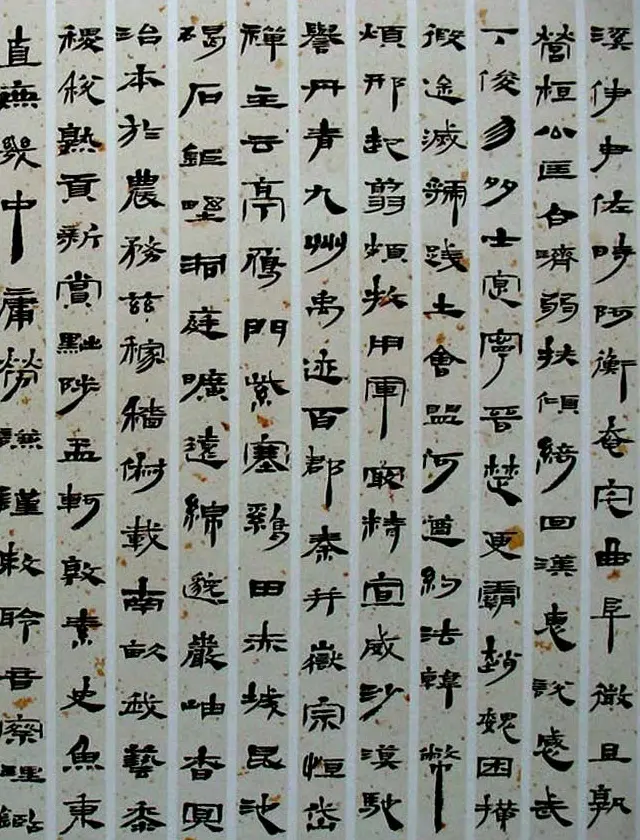 溪伊尹佐時阿衡奄宅曲阜微旦孰
營桓公匡合濟弱扶傾綺回漢惠說感武
丁俊勿多士寔寧晉楚更霸趙魏困橫
假途滅虢踐土會盟何遵約法韓幣
煩刑起翦頗牧用軍最精宣威沙漠馳
譽丹青九州禹迹百郡秦并嶽宗恒岱
禪主云亭鴈門紫塞鷄田赤城昆池
碣石鉅野洞庭曠遠綿邈巖岫杳冥
治本於農務茲稼穡俶載南畝我藝黍
稷稅熟貢新賞黜陟孟軻敦素史魚秉
直庶幾中庸勞謙謹敕聆音察理鑑